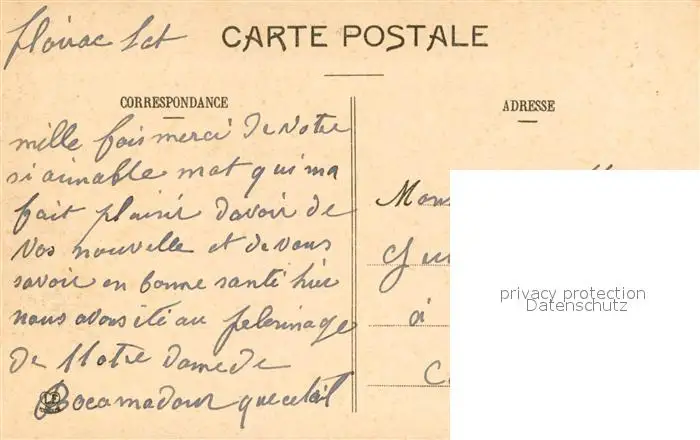 floirac Lot
CARTE POSTALE
CORRESPONDANCE
ADRESSE
mille fois merci de votre
si aimable mot qui ma
fait plaisir davoir de
vos nouvelle et de vous
savoir en bonne santé hier
nous avons été au pelerinage
de Notre dame de
Rocamadour que cetait
Mons
à
privacy protection
Datenschutz